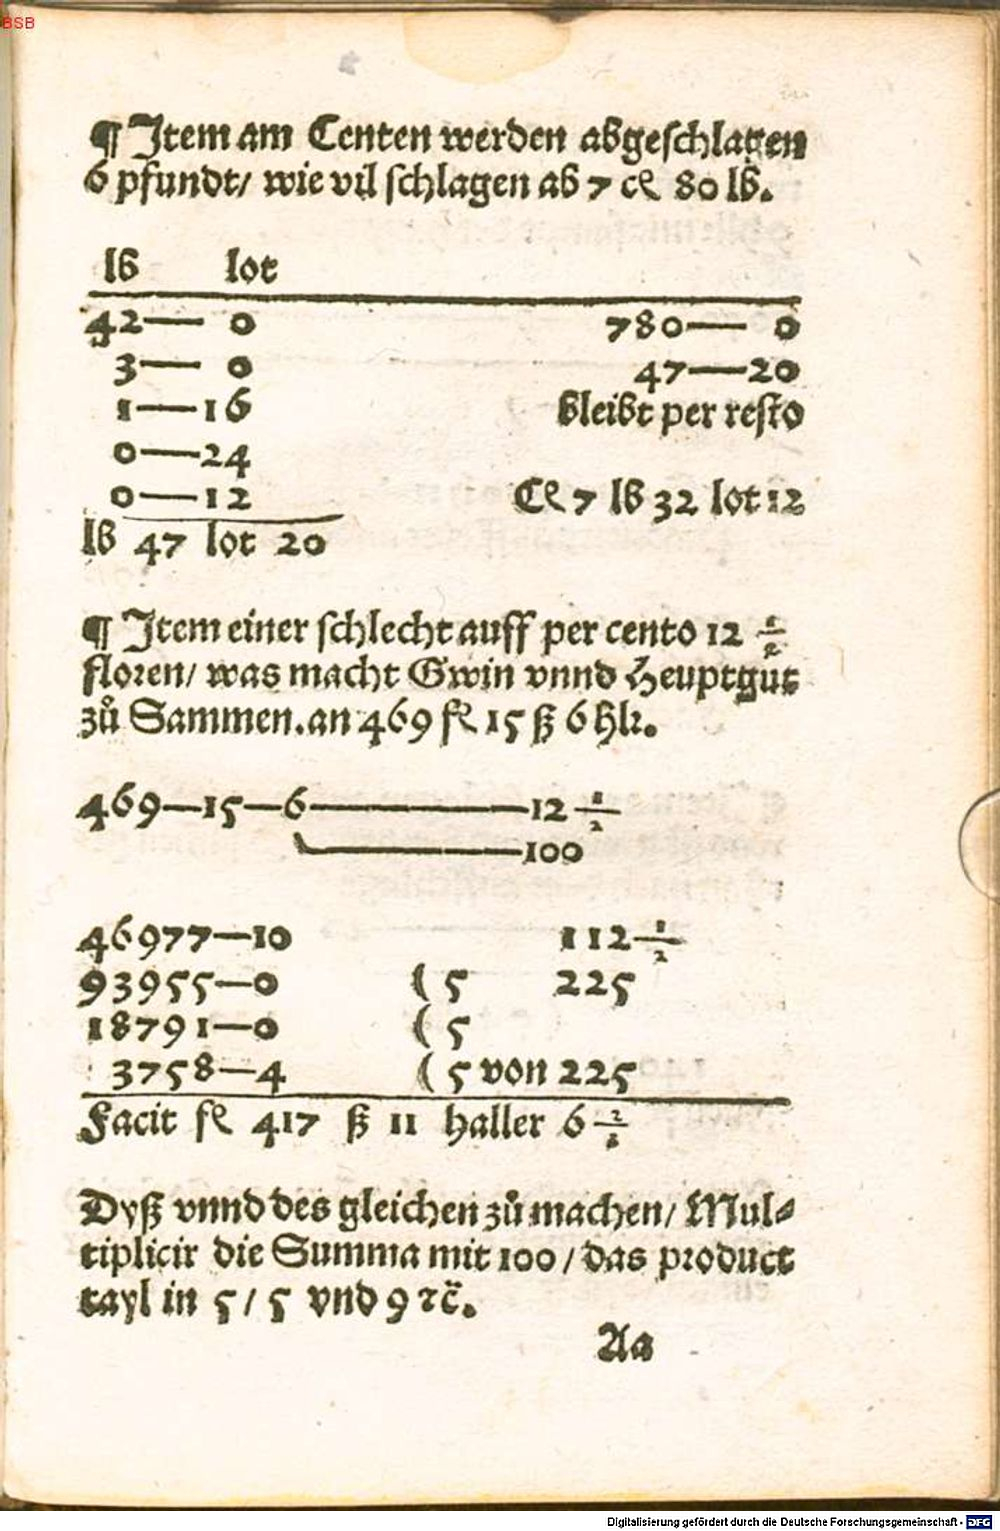 BSB
¶ Item am Centen werden abgeschlagen
6 pfundt/ wie vil schlagen ab 7 cę 80 lb.
lb lot
42— 0 780— 0
3— 0 47—20
1—16 bleibt per resto
0—24
0—12 Cę 7 lb 32 lot 12
lb 47 lot 20
¶ Item einer schlecht auff per cento 12 1/2
floren/ was macht Gwin vnnd Heuptgut
zů Sammen. an 469 fl 15 ß 6 hlr.
469—15—6———12 1/2
———100
46977—10 112 1/2
93955—0 (5 225
18791—0 (5
3758—4 (5 von 225
Facit fl 417 ß 11 haller 6 2/1
Dyß vnnd des gleichen zů machen/ Mul⸗
tiplicir die Summa mit 100/ das product
tayl in 5/ 5 vnd 9 ꝛc̃.
Aa
Digitalisierung gefördert durch die Deutsche Forschungsgemeinschaft - DFG